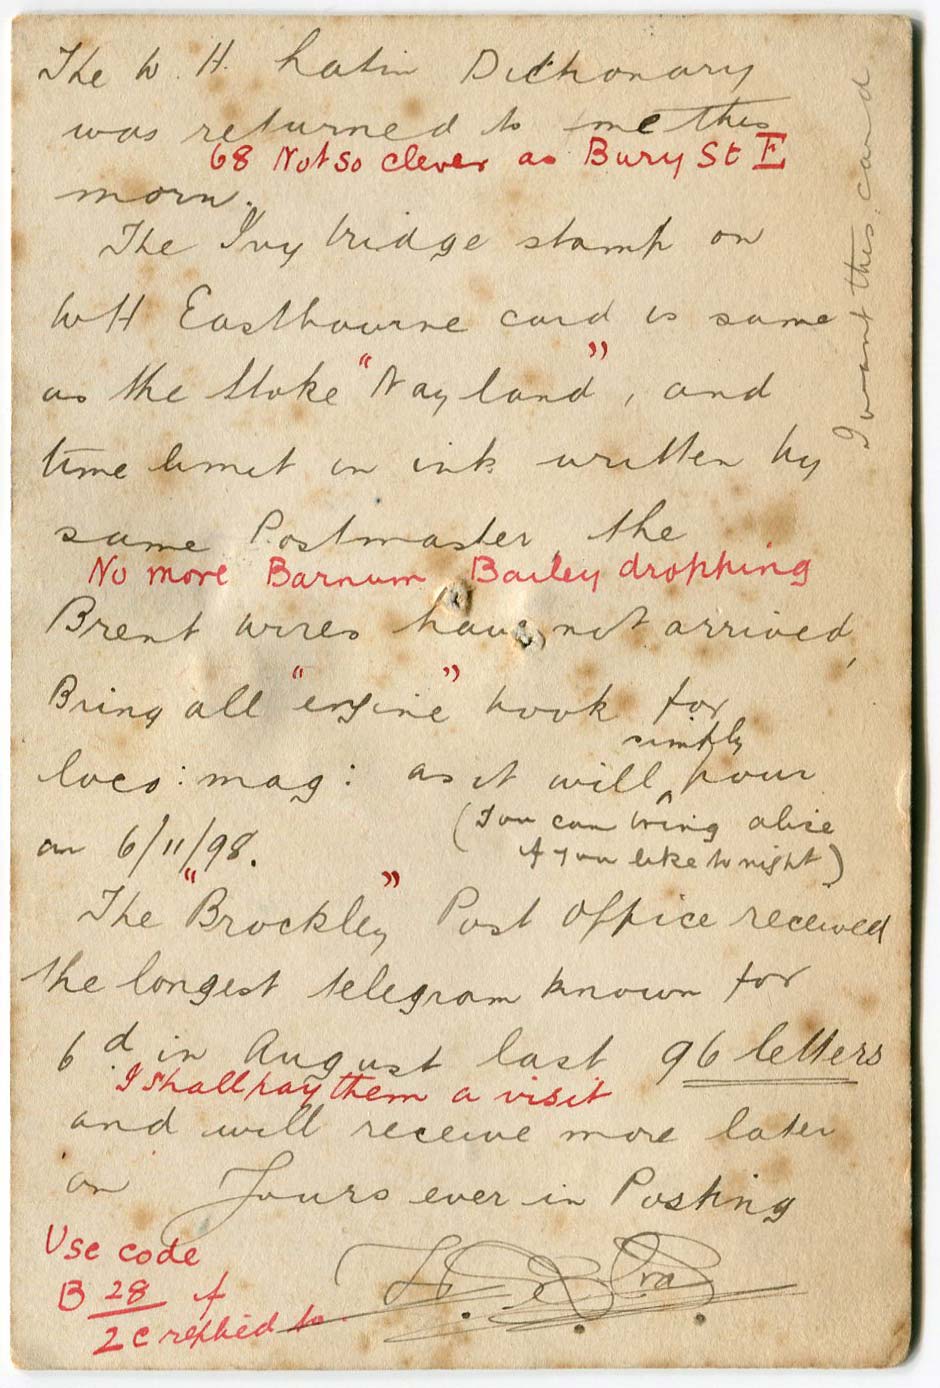 The W. H. Latin Dictionary
was returned to me this
68 Not so clever as Bury St E
morn.
The Ivy bridge stamp on
WH Eastbourne card is same
as the Stoke "Nayland", and
time limit in ink written by
same Postmaster, the
No more Barnum Bailey dropping
Brent wires have not arrived,
Bring all "engine" book for
simply
loco: mag: as it will pour
on 6/11/98.
(You can bring alice
if you like to night)
The "Brockley" Post Office received
the longest telegram known for
6d in August last 96 letters
I shall pay them a visit
and will receive more later
on Yours ever in Posting
Use code
B 28 if
2C replied to.
I want this card